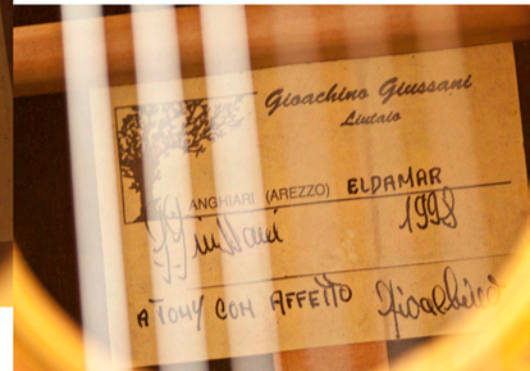 Gioachino Giussani
Liutaio
ANGHIARI (AREZZO) ELDAMAR
GGiussani 1998
A TONY CON AFFETTO Gioachino